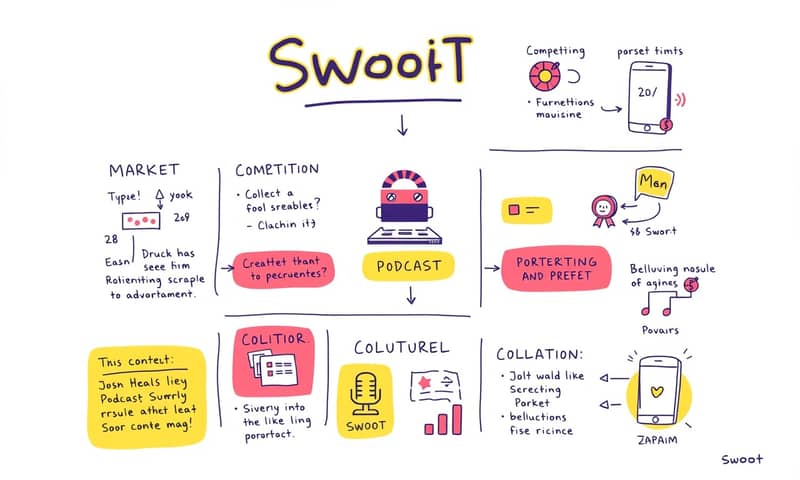 SWOOiT
Competting
• Furnettions
mauisine
porset timts
20/
MARKET
Typœe!
yook
209
28
Easn
Druck has
seee him
Rolieniting scraple
to advortament.
COMPTITION
• Collect a
fool sreables?
- Clachin it?
Creattet thant
to pecruentes?
PODCAST
Man
$$ Swort
PORTERTING
AND PREFET
Belluving nosule
of agines
Povairs
This contect:
Josn Heals liey
Podcast Sumrly
rrsule athet leat
Soor conte mag!
COLITIOR.
• Siverny into
the like ling
porortact.
COLUTUREL
SWOOT
COLLATION:
• Jolt wald like
Screcting
Porket
• belluctions
fise ricince
ZAPAIM
Swoot